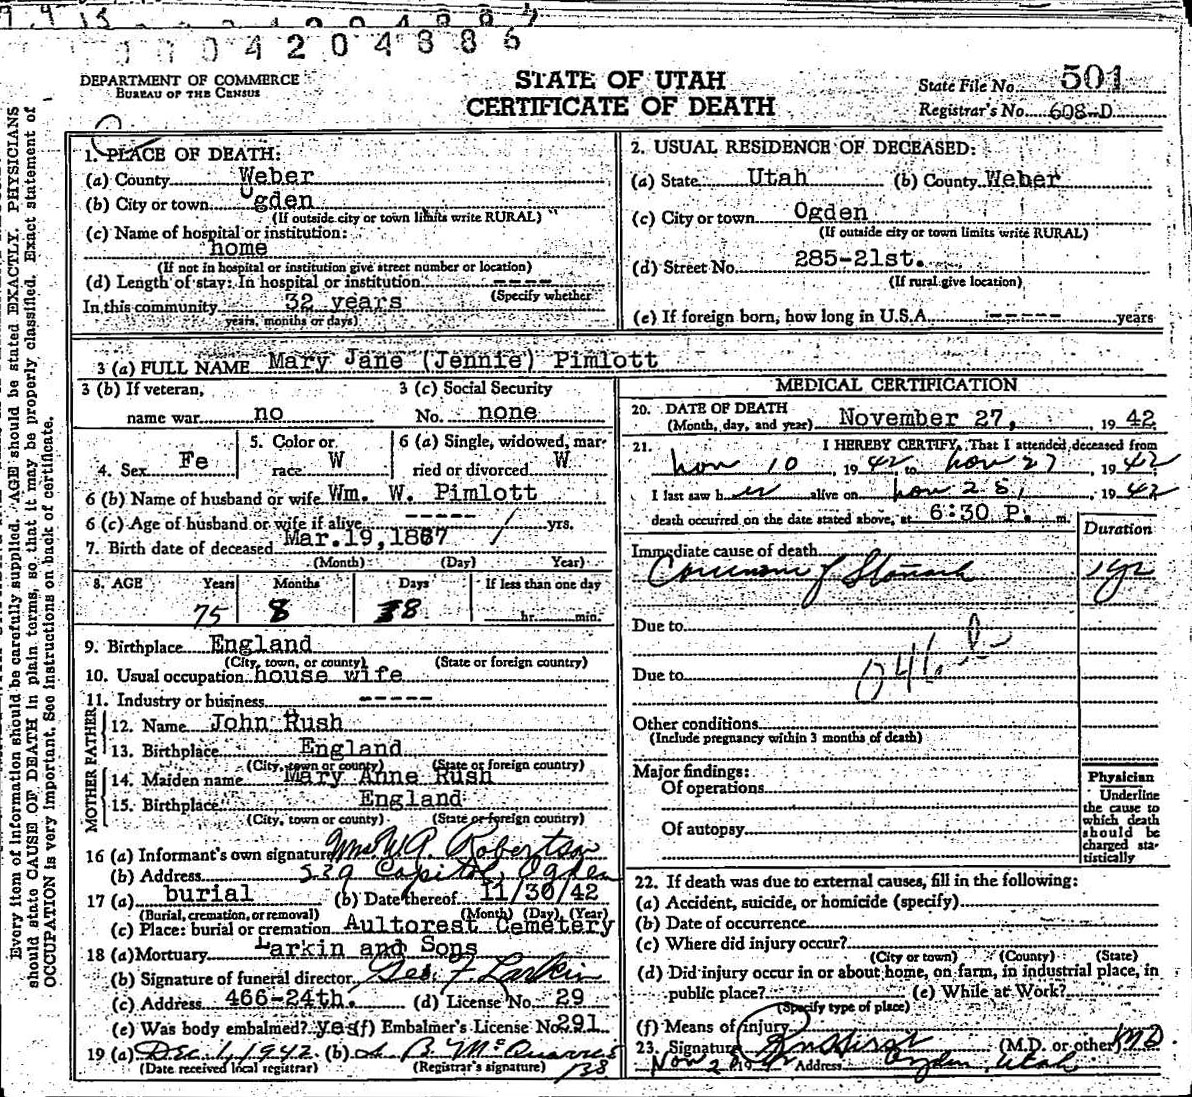 0 0 0 4 2 0 4 8 8 6
DEPARTMENT OF COMMERCE
BUREAU OF THE CENSUS
STATE OF UTAH
CERTIFICATE OF DEATH
State File No. 501
Registrar's No. 608-D
Every item of information should be carefully supplied. AGE should be stated EXACTLY. PHYSICIANS
should state CAUSE OF DEATH in plain terms, so that it may be properly classified. Exact statement of
OCCUPATION is very important. See instructions on back of certificate.
1. PLACE OF DEATH:
(a) County Weber
(b) City or town Ogden
(If outside city or town limits write RURAL)
(c) Name of hospital or institution:
home
(If not in hospital or institution give street number or location)
(d) Length of stay: In hospital or institution ----
(Specify whether
In this community 32 years
years, months or days)
2. USUAL RESIDENCE OF DECEASED:
(a) State Utah (b) County Weber
(c) City or town Ogden
(If outside city or town limits write RURAL)
(d) Street No. 285-21st.
(If rural give location)
(e) If foreign born, how long in U.S.A. ----- years
3 (a) FULL NAME Mary Jane (Jennie) Pimlott
3 (b) If veteran,
name war no
3 (c) Social Security
No. none
4. Sex Fe
5. Color or
race W
6 (a) Single, widowed, mar-
ried or divorced W
6 (b) Name of husband or wife Wm. W. Pimlott
6 (c) Age of husband or wife if alive ----- yrs.
7. Birth date of deceased Mar.19,1867
(Month) (Day) Year)
8. AGE Years Months Days If less than one day
75 8 8 hr. min.
9. Birthplace England
(City, town, or county) (State or foreign country)
10. Usual occupation house wife
11. Industry or business -----
FATHER
12. Name John Rush
13. Birthplace England
(City, town or county) (State or foreign country)
MOTHER
14. Maiden name Mary Anne Rush
15. Birthplace England
(City, town or county) (State or foreign country)
16 (a) Informant's own signature Mrs W. A. Robertson
(b) Address 539 Capitol, Ogden
17 (a) burial (b) Date thereof 11/30/42
(Burial, cremation, or removal) (Month) (Day) (Year)
(c) Place: burial or cremation Aultorest Cemetery
18 (a) Mortuary Larkin and Sons
(b) Signature of funeral director Geo. F. Larkin
(c) Address 466-24th. (d) License No. 29
(e) Was body embalmed? yes (f) Embalmer's License No. 291
19 (a) Dec. 1, 1942 (b)
(Date received local registrar) (Registrar's signature) 138
MEDICAL CERTIFICATION
20. DATE OF DEATH
(Month, day, and year) November 27, 1942
21. I HEREBY CERTIFY, That I attended deceased from
Nov 10, 1942 to Nov 27 1942
I last saw her alive on Nov 25, 1942
death occurred on the date stated above, at 6:30 P. m.
Duration
Immediate cause of death
Carcinoma of Stomach 1 yr
Due to
Due to
Other conditions
(Include pregnancy within 3 months of death)
Major findings:
Of operations
Of autopsy
Physician
Underline
the cause to
which death
should be
charged sta-
tistically
22. If death was due to external causes, fill in the following:
(a) Accident, suicide, or homicide (specify)
(b) Date of occurrence
(c) Where did injury occur?
(City or town) (County) (State)
(d) Did injury occur in or about home, on farm, in industrial place, in
public place? (e) While at Work?
(Specify type of place)
(f) Means of injury
23. Signature (M.D. or other) MD
Nov 28 1942 Address Ogden, Utah